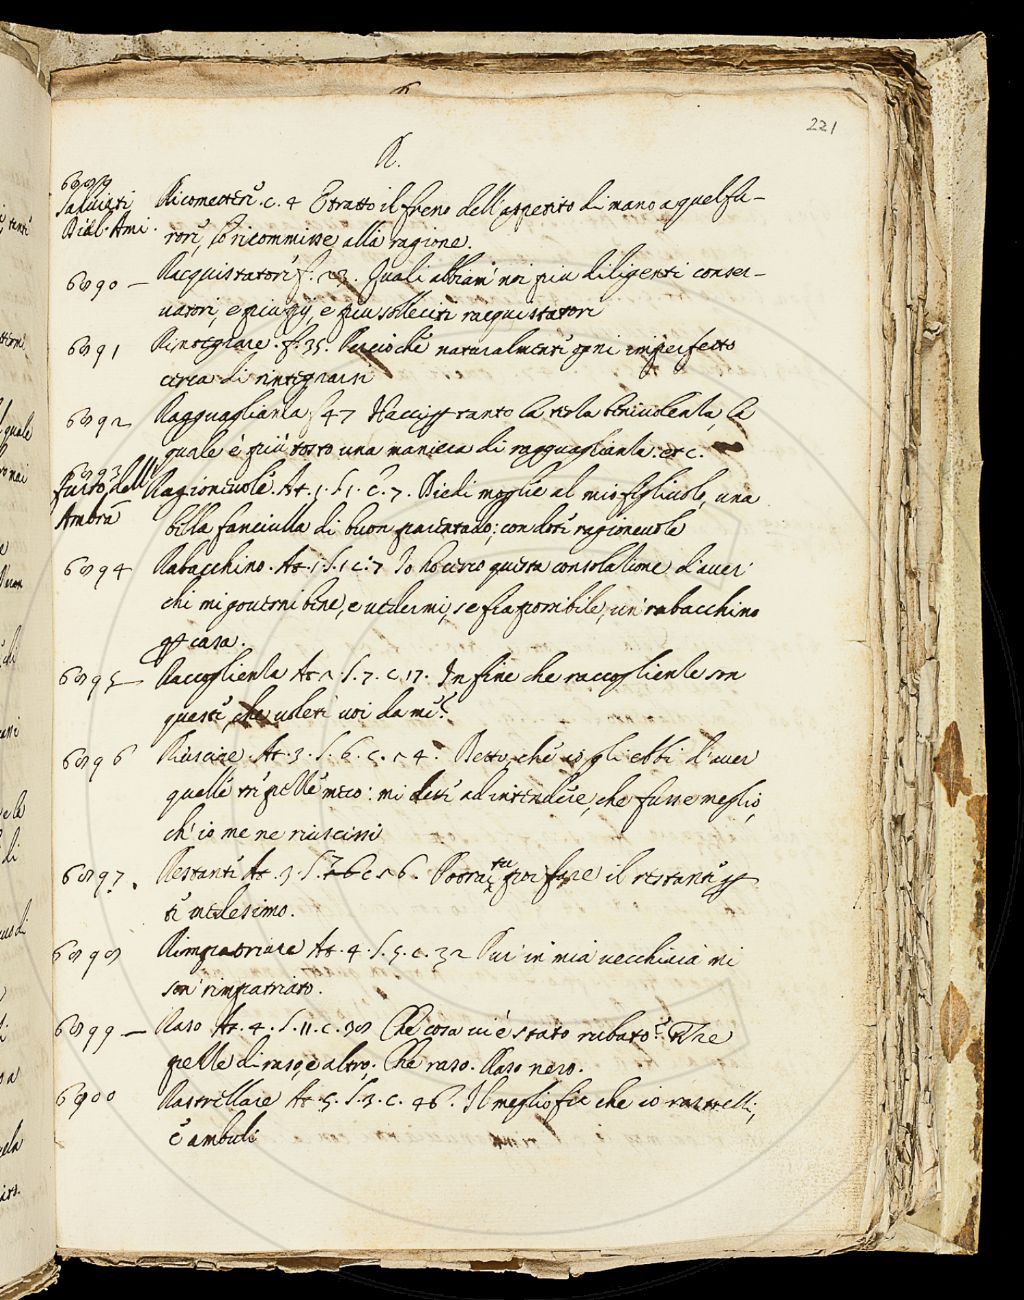 221
R.
6889
Salviati
Dial. Ami.
Ricomettere. c. 4 E tratto il freno dell'appetito di mano a quel fu-
rore, lo ricommisse alla ragione.
6890 — Racquistatore f. 23. Quali abbiam noi più diligenti conser-
vatori, e più pij, e più solleciti racquistatori
6891 Rintegrare. f. 35. Perciochè naturalmente ogni imperfetto
cerca di rintegrarsi
6892 Ragguaglianza f 47 tanto la vera benivolenza, la
quale è più tosto una maniera di ragguaglianza: etc.
6893
Furto dell'
Ambra
Ragionevole. At. 1. S. 1. C. 7. Diedi moglie al mio figliuolo, una
bella fanciulla di buon parentado; con dote ragionevole
6894 Rabacchino. At. 1. S. 1 c. 7 Io ho cerco questa consolazione d'aver
chi mi governi bene, e vedermi, se fia possibile, un rabacchino
p casa.
6895 — Raccoglienza At 2. S. 7. c. 17. In fine che raccoglienze son
queste, che volete voi da me?
6896 Riuscire. At. 3. S. 6. c. 24. Detto, che io gli ebbi d'aver
quelle meco: mi dette ad intendere, che fusse meglio,
ch'io me ne riuscissi
6897. Restante At. 3. S. 7 c 26. Potrai tu poi fare il restante p
te medesimo.
6898 Rimpatriare At. 4. S. 5. c. 32 Pur in mia vecchiaia mi
son rimpatriato.
6899 — Raso At. 4. S. 11. c. 38 Che cosa vi è stato rubato? Tre
pelle di raso, e altro. Che raso. Raso nero.
6900 Rastrellare At. 5. S. 3. c. 46. Il meglio fie che io rastrelli,
e ambuli